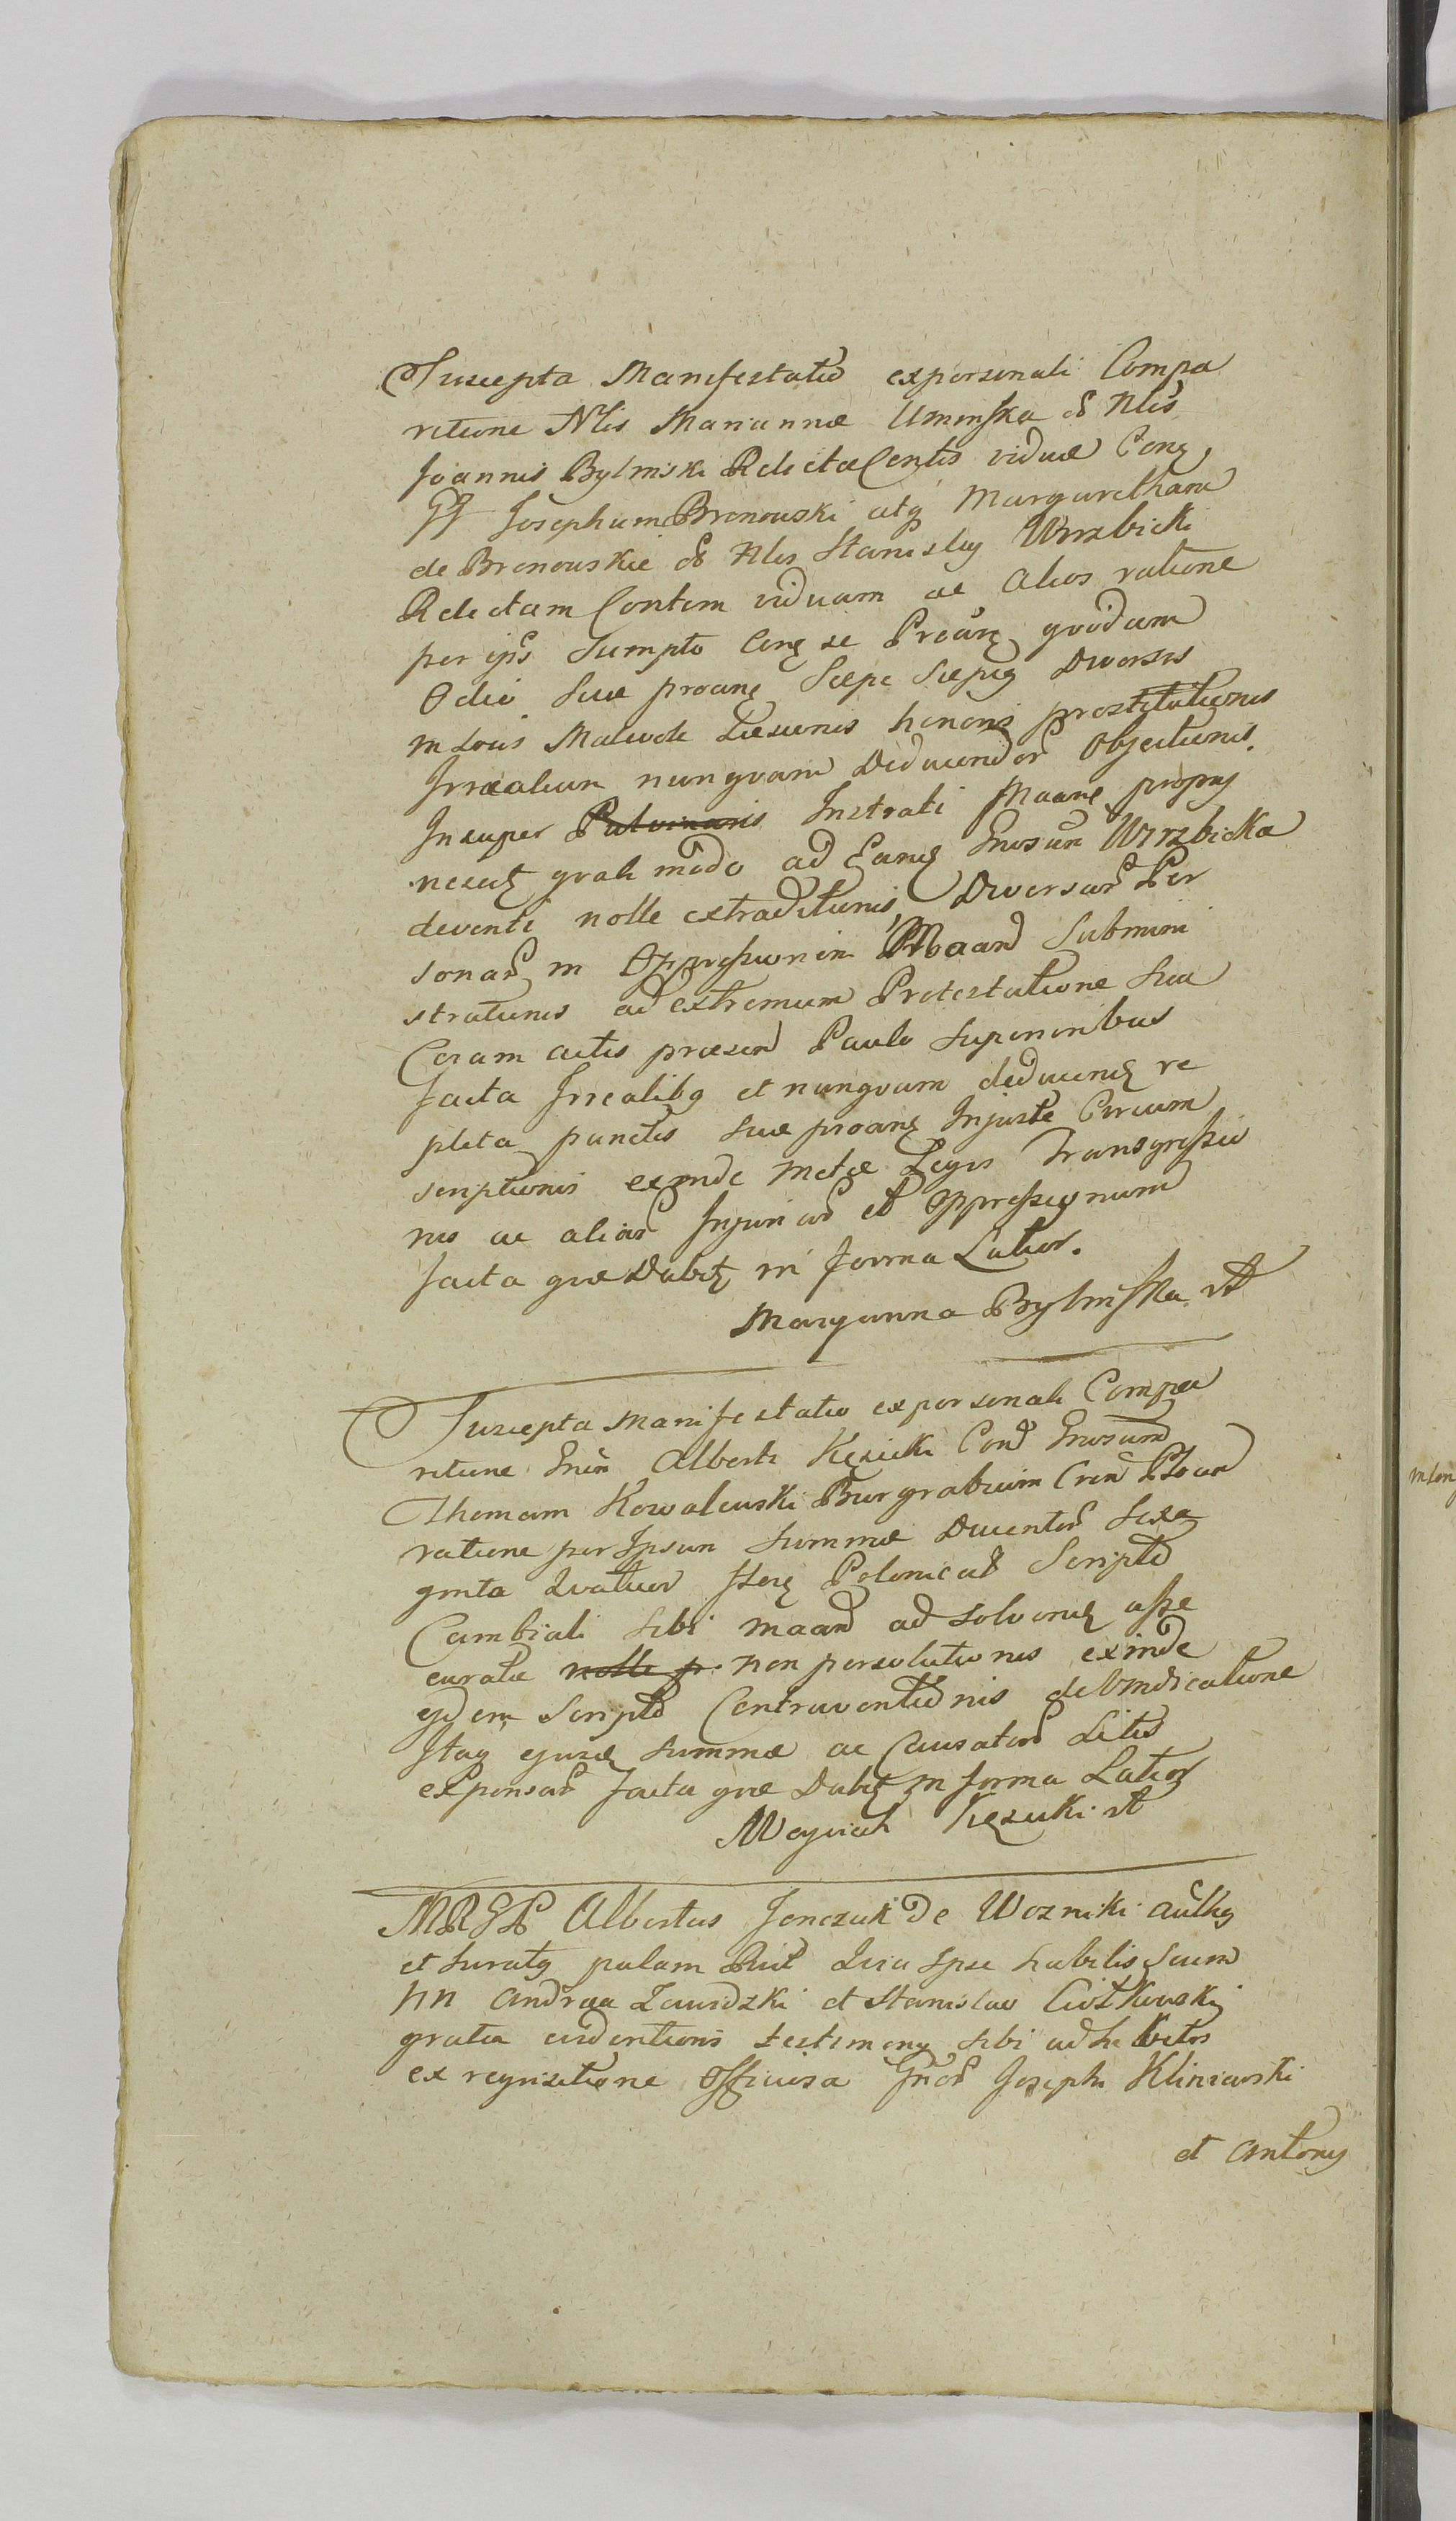 Suscepta Manifestatio ex personali Compa
ritione Nlis Mariannæ Uminska & Nlis
Joannis Bylinski Relictæ Contis viduæ Conq
GG Josephum Bronowski atq Margaretham
de Bronowskie & Nlis Stanislai Wirzbicki
Relictam Contem viduam ac alios ratione
per ipsos sumpto Conq se Proanq quodam
Odio suæ proanq sæpe sæpiq Diversis
in Locis Malivole Læsionis honoris prostitutionis
Irrealium nunquam Deducendor Objectionis.
Insuper Instrati Maanq propry
nescitq quali modo ad Eanq Gnosam Wirzbicka
deventi nolle extraditionis, Diversar Per
sonar in Oppressionem Maand Submini
strationis ad extremum Protestatione sua
Coram actis præsend Paulo Superioribus
facta Irrealibq et nunquam deducendq re
pleta punctis suæ proanq Injuste Circum
scriptionis exinde Metæ Legis Transgressio
nis ac aliar Injuriar et Oppressionum
facta quæ Dabitq in forma Latior.
Maryanna Bylinska
Suscepta Manifestatio ex personali Compa
ritione Gnsi Alberti Kęsicki Cond Gnosum
Thomam Kowalewski Burgrabium Cren
ratione per Ipsum Summæ Ducentor Sexa
ginta Quatuor flenq Polonical Scripto
Cambiali sibi maand ad solvendq asse
curatæ nolle p. non persolutionis exinde
ejdem Scripto Contraventionis de Vindicatione
Itaq ejusdq summæ ac Causator Litis
expensar facta quæ Dabitq in forma Latior
Woyciech Kęsicki
MRGP Albertus Jenczak de Wozniki authq
et Juratq palam Quia Ipse habilis secum
hn Andrea Zawidzki et Stanislao Ciołkowski
gratia evidentioris testimony sibi adhibitos
ex requisitione Officiosa Gnor Josephi Kliniewski
et Antony